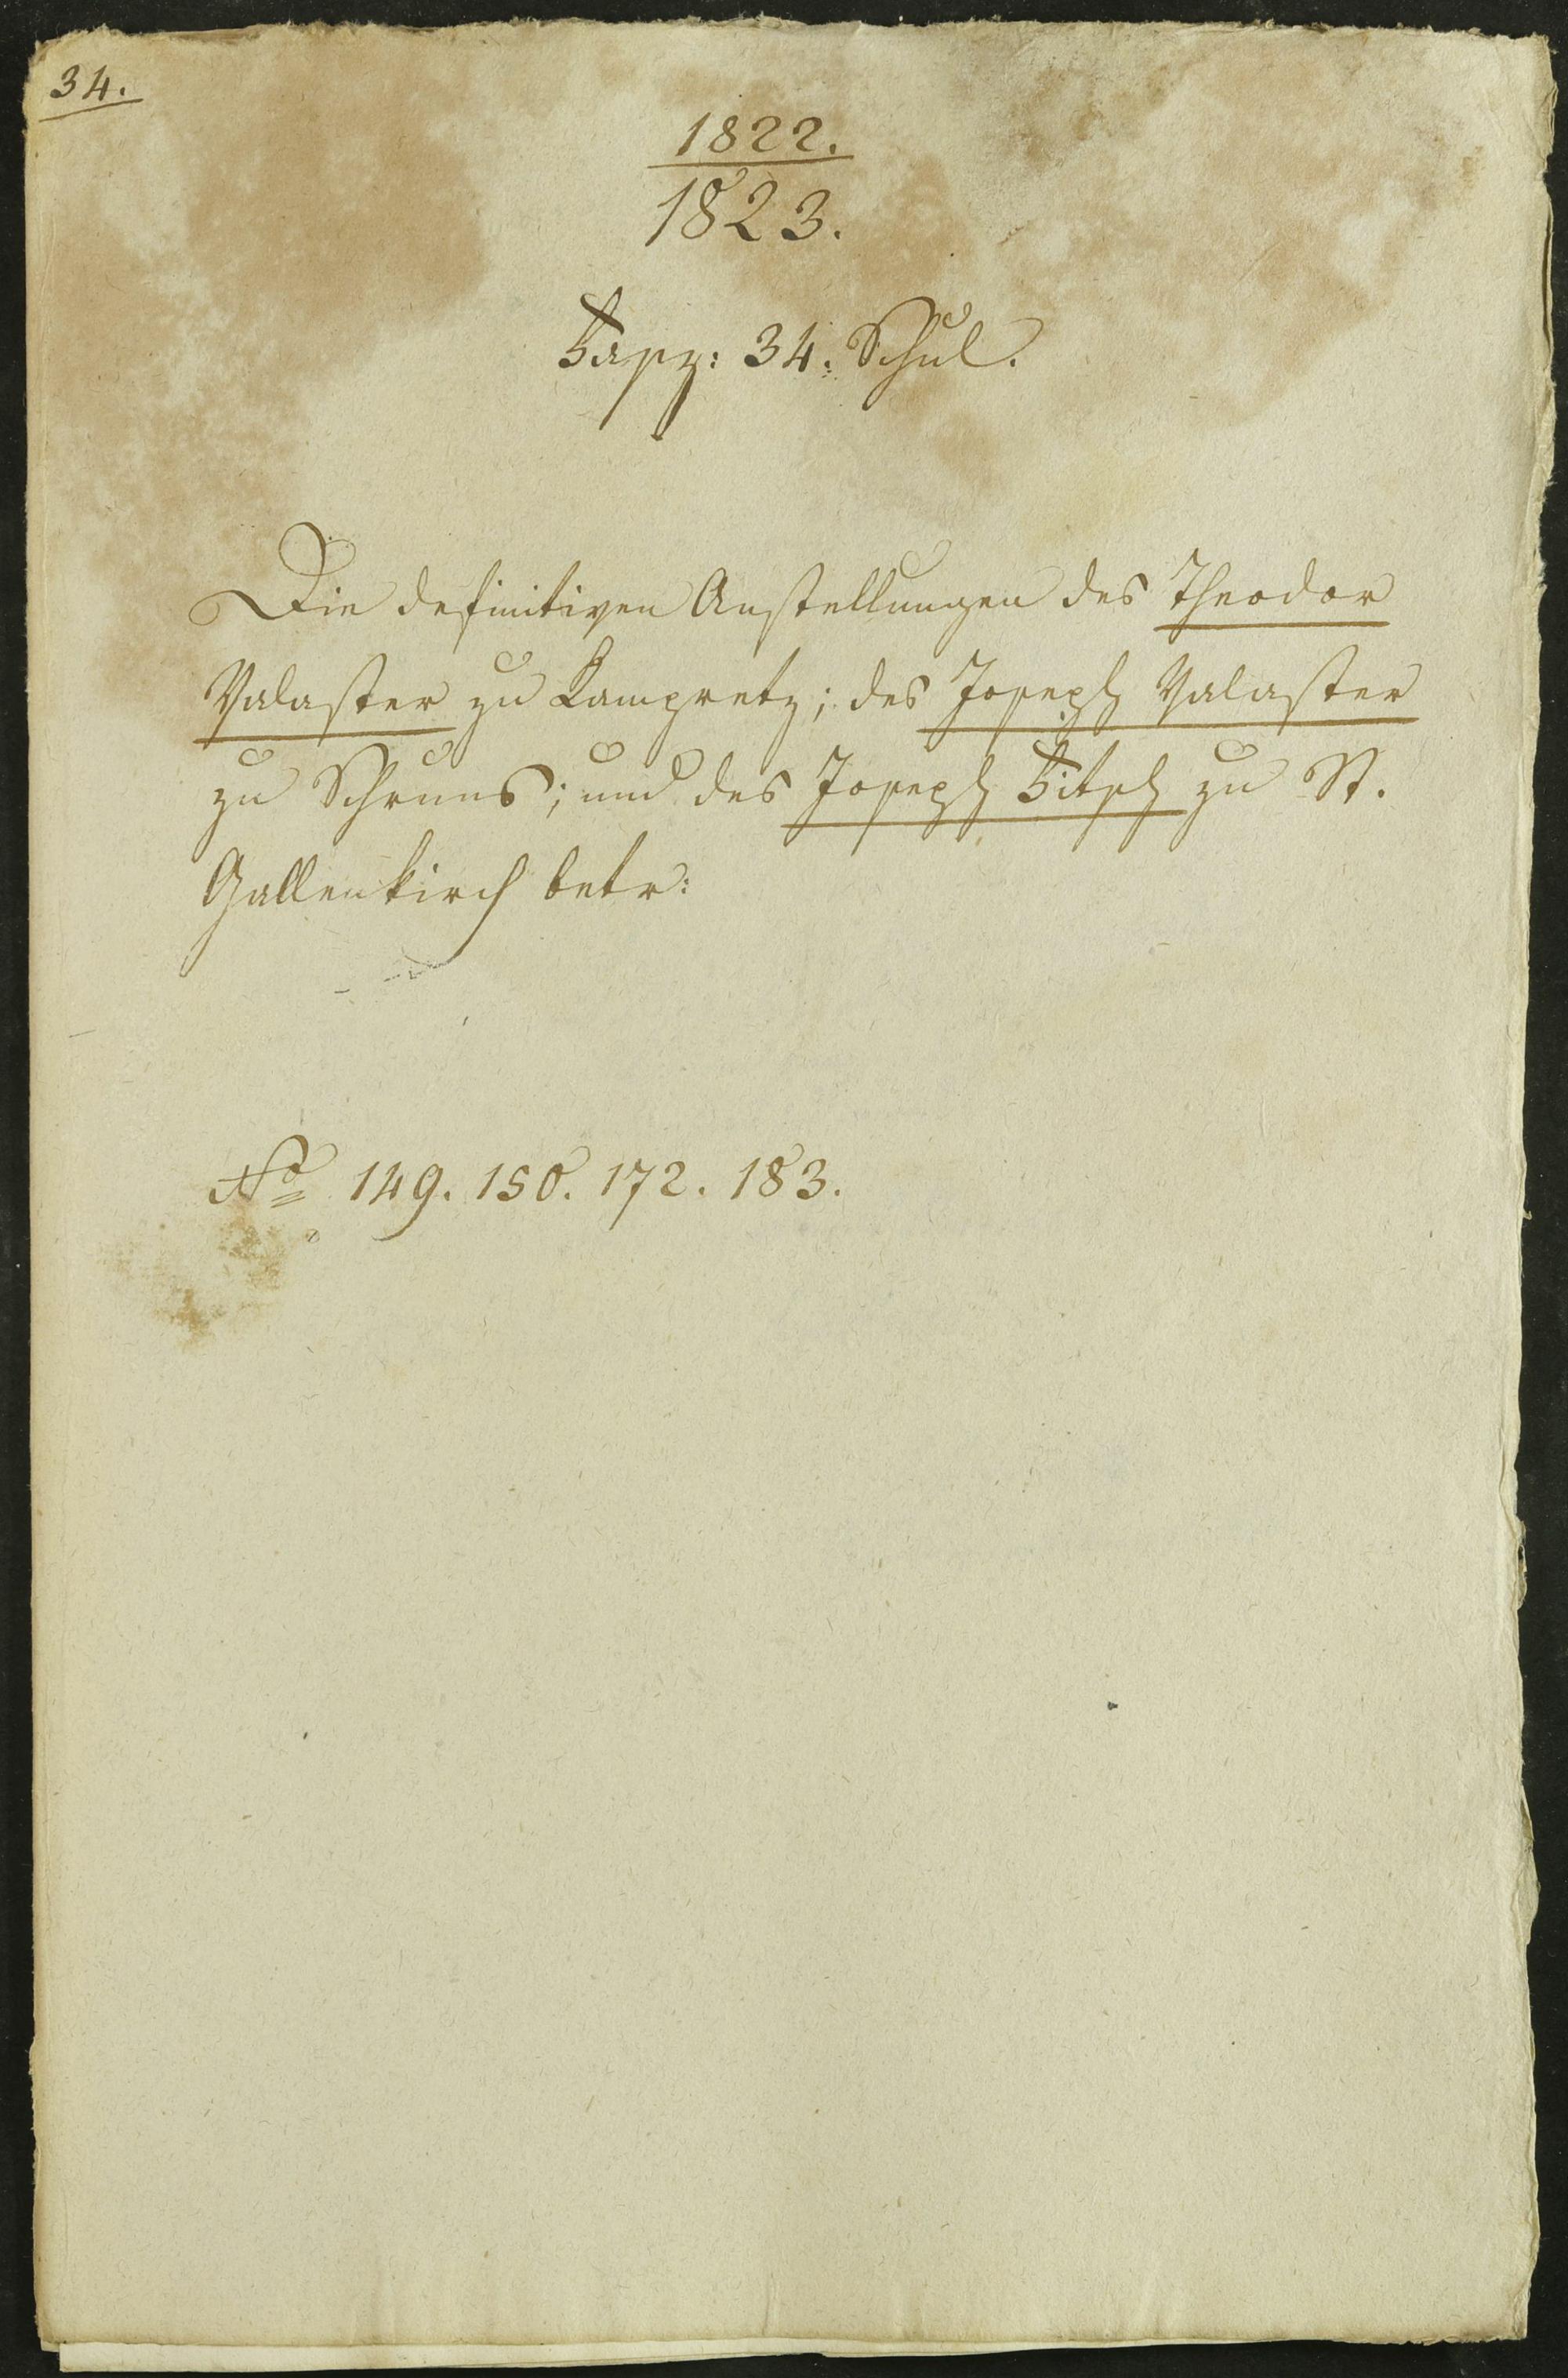 34.
1822.
1823.
Fasz: 34. Schul.
Die definitiven Anstellungen des Theodor
Valaster zu Kampretz; des Joseph Valaster
zu Schruns; und des Joseph Fitsch zu St.
Gallenkirch betr:
No 149. 150. 172. 183.